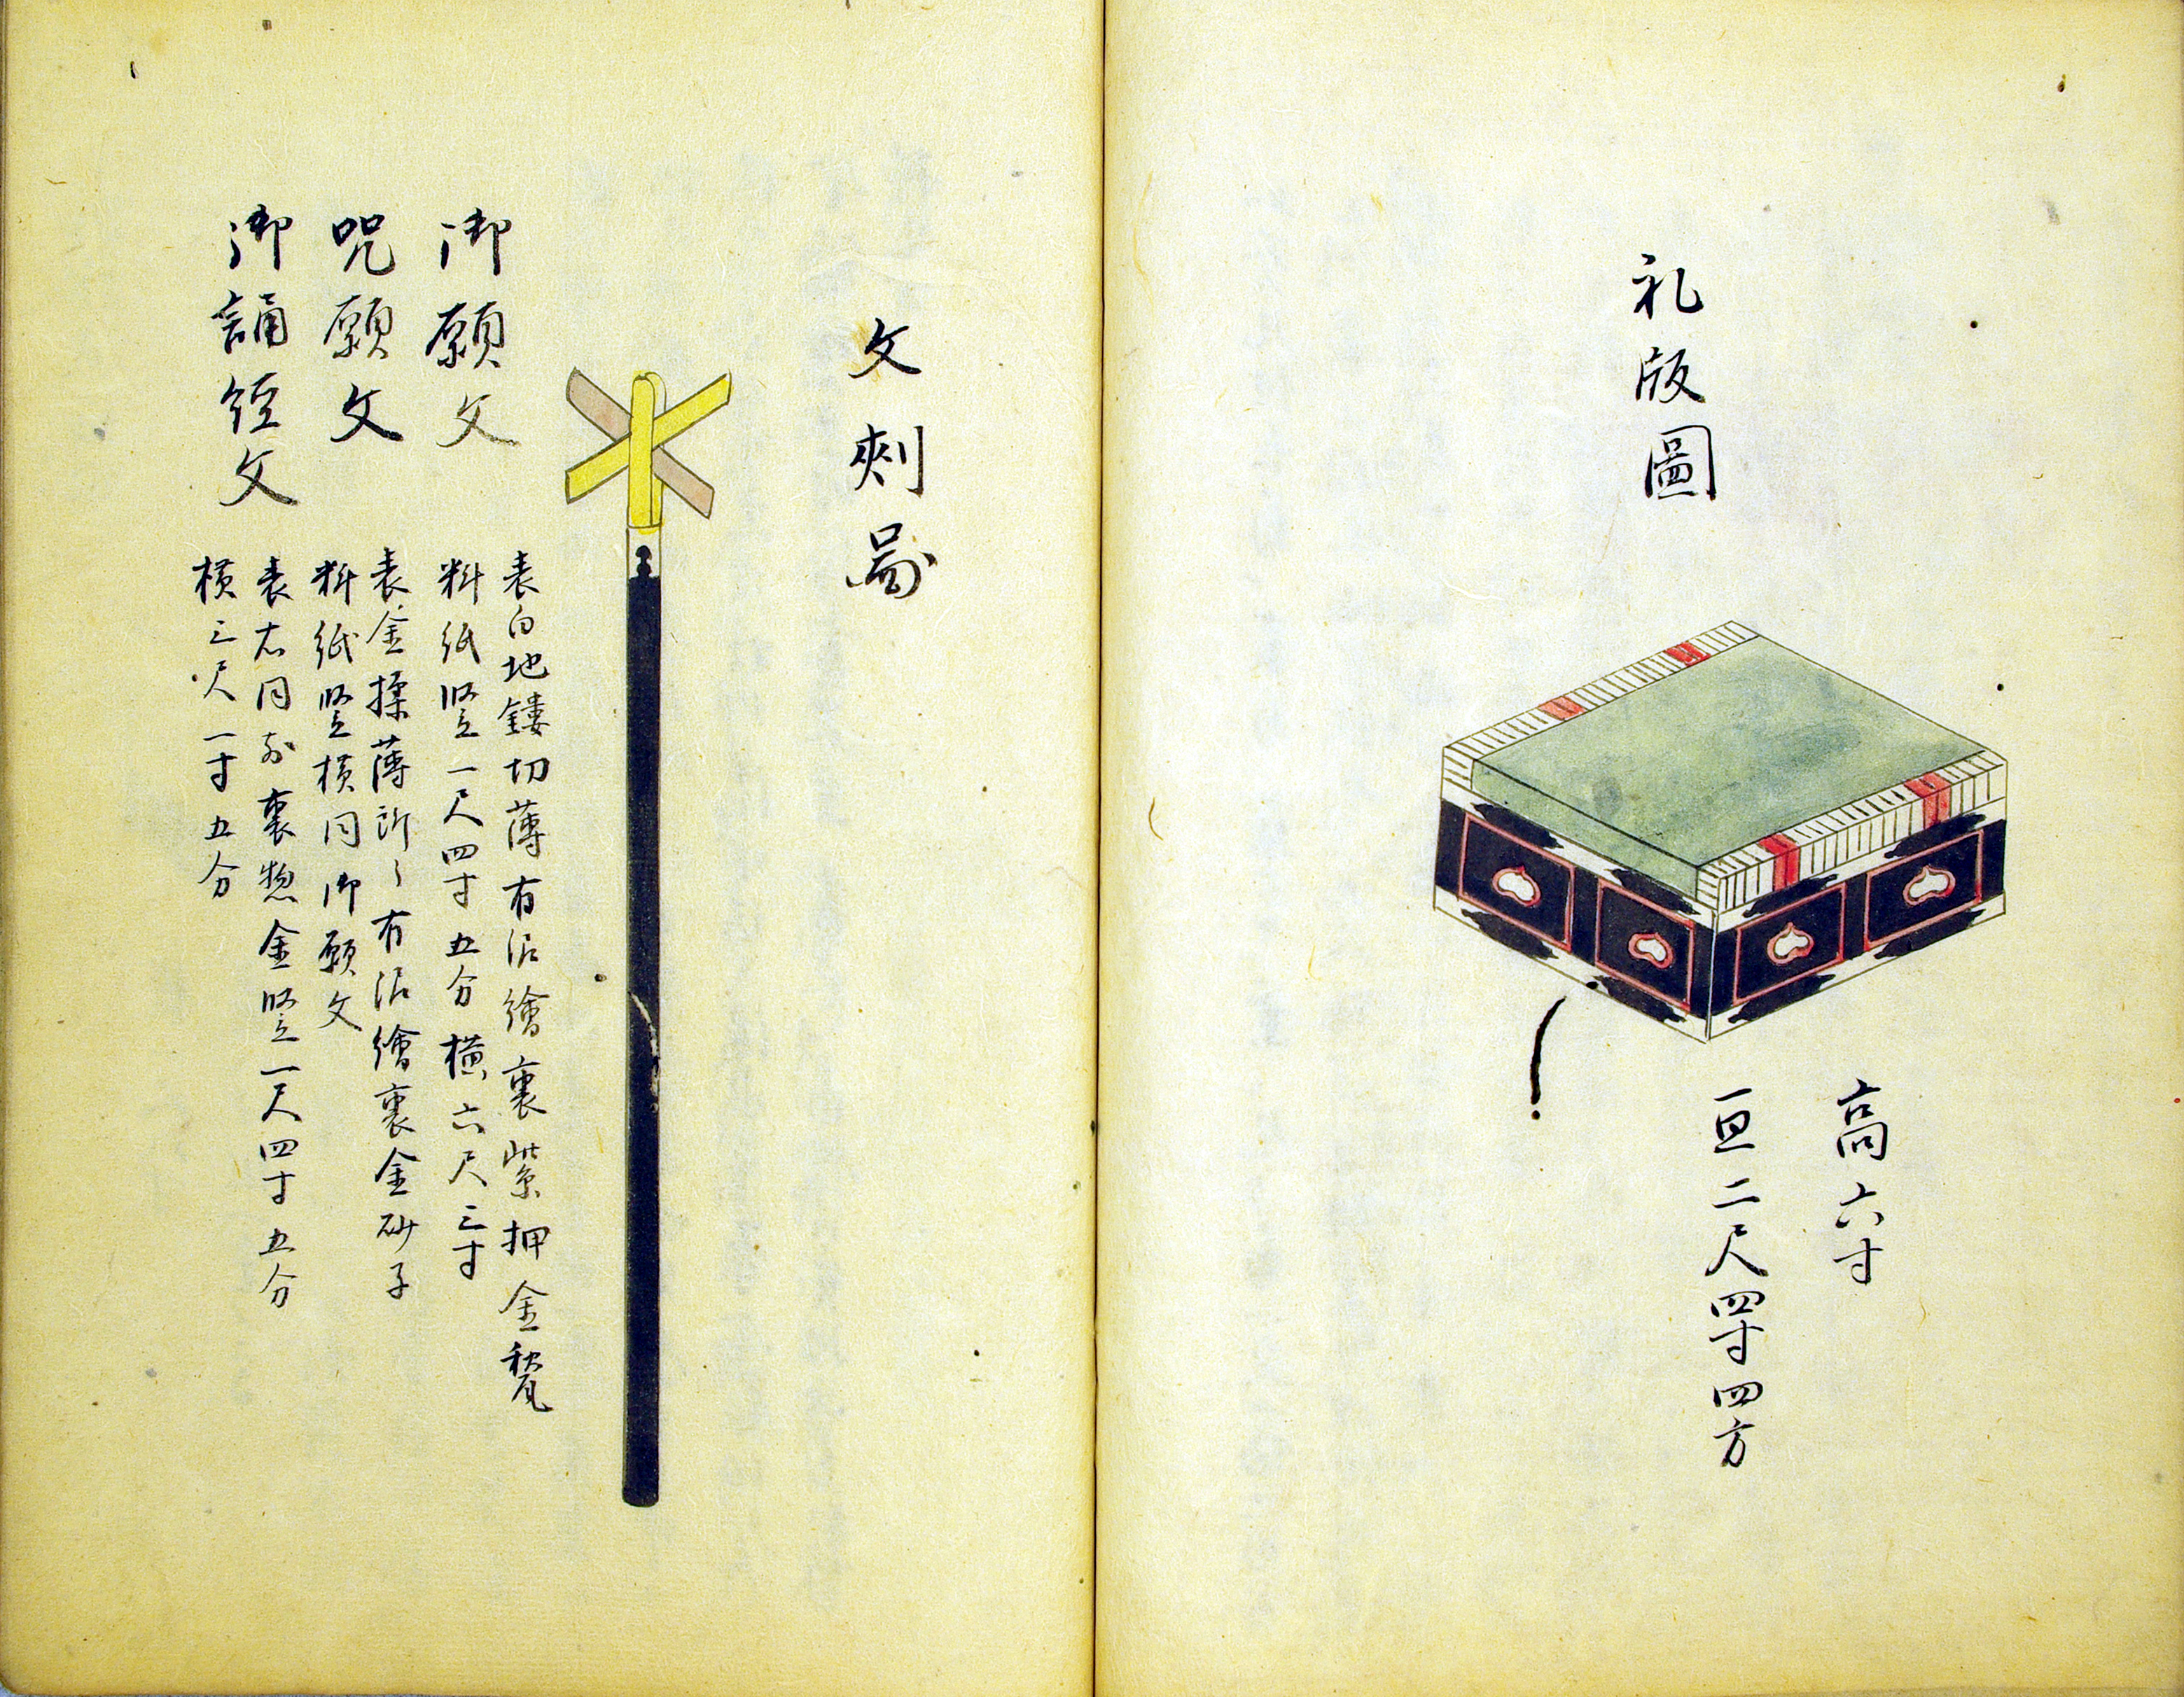 礼版圖
高六寸
亘二尺四寸四方
文刺啚
御願文
表白地鏤切薄有泥繪裏紫押金
料紙竪一尺四寸五分横六尺三寸
呪願文
表金揉薄所々有泥繪裏金砂子
料紙竪横同御願文
御誦経文
表右同前裏惣金竪一尺四寸五分
横三尺一寸五分